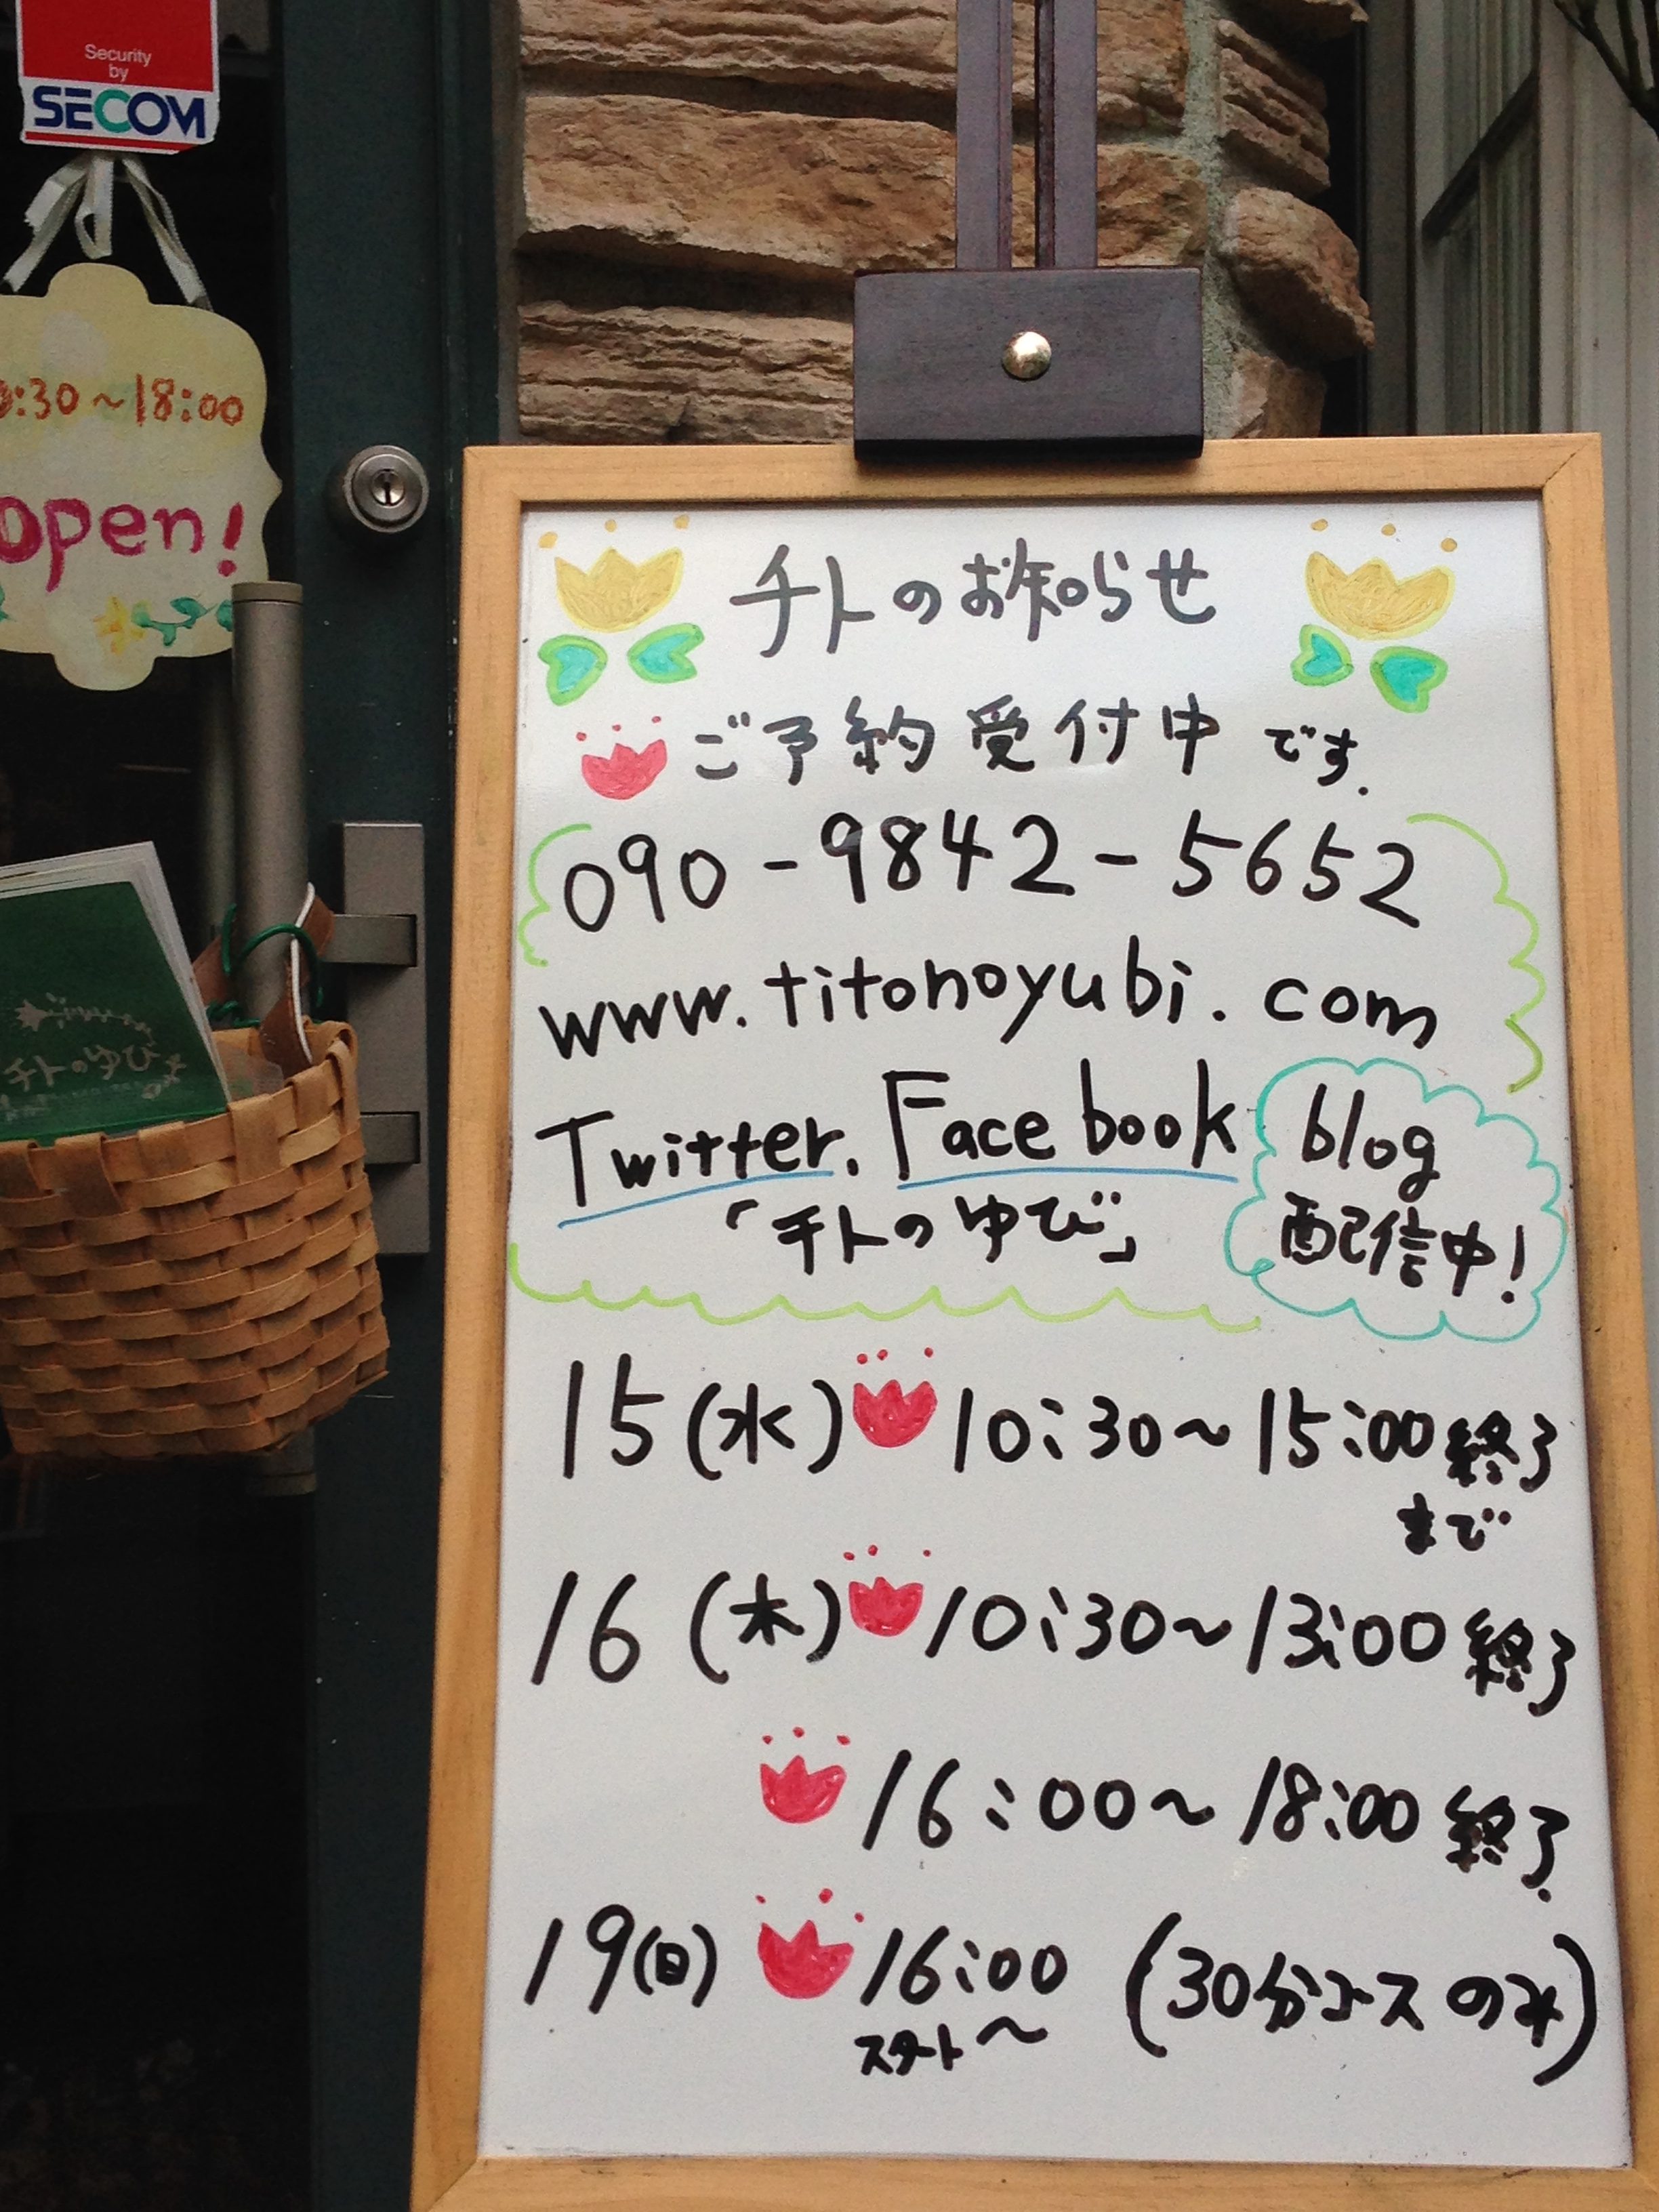 Security
by
SECOM
:30~18:00
open!
チトのゆび
チトのお知らせ
ご予約受付中です.
090-9842-5652
www.titonoyubi.com
Twitter. Facebook
「チトのゆび」
blog
配信中!
15(水) 10:30~15:00終了
まで
16(木) 10:30~13:00終了
16:00~18:00終了.
19(日) 16:00 (30分コースのみ)
スタート~